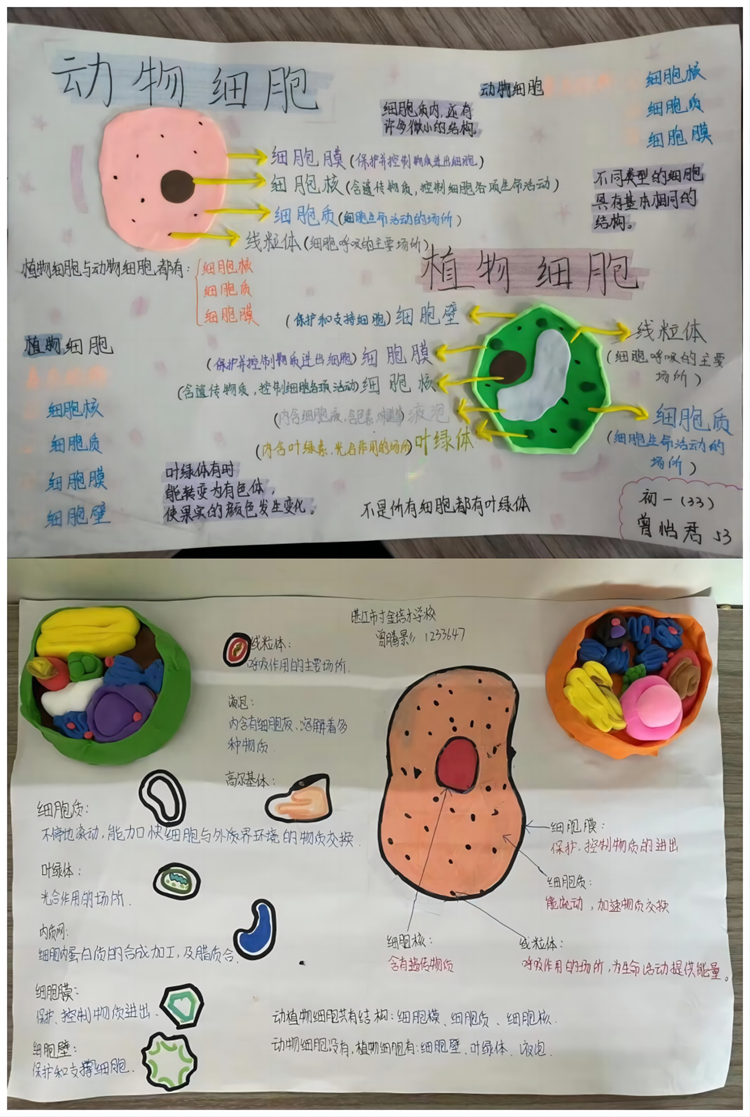 动物细胞
细胞质内,还有
许多微小的结构。
动物细胞
细胞核
细胞质
细胞膜
细胞膜(保护并控制物质进出细胞)
细胞核(含遗传物质,控制细胞各项生命活动)
细胞质(细胞生命活动的场所)
线粒体(细胞呼吸的主要场所)
不同类型的细胞
具有基本相同的
结构。
植物细胞与动物细胞都有:
细胞核
细胞质
细胞膜
植物细胞
(保护和支持细胞)细胞壁
(保护并控制物质进出细胞)细胞膜
(含遗传物质,控制细胞各项活动)细胞核
液泡
(内含叶绿素,光合作用的场所)叶绿体
线粒体
(细胞呼吸的主要
场所)
细胞质
(细胞生命活动的
场所)
植物细胞
细胞核
细胞质
细胞膜
细胞壁
叶绿体有时
能转变为有色体,
使果实的颜色发生变化。
不是所有细胞都有叶绿体
初一(33)
曾怡君 53
湛江市寸金培才学校
1233647
线粒体:
呼吸作用的主要场所.
液泡:
内含有细胞液、溶解着多
种物质.
高尔基体:
细胞质:
不停地流动,能加快细胞与外界环境的物质交换.
叶绿体:
光合作用的场所.
内质网:
细胞内蛋白质的合成加工,及脂质合.
细胞膜:
保护、控制物质进出.
细胞壁:
保护和支撑细胞.
细胞膜:
保护、控制物质的进出
细胞质:
能流动,加速物质交换
细胞核:
含有遗传物质
线粒体:
呼吸作用的场所,为生命活动提供能量。
动植物细胞共有结构:细胞膜、细胞质、细胞核.
动物细胞没有,植物细胞有:细胞壁、叶绿体、液泡.